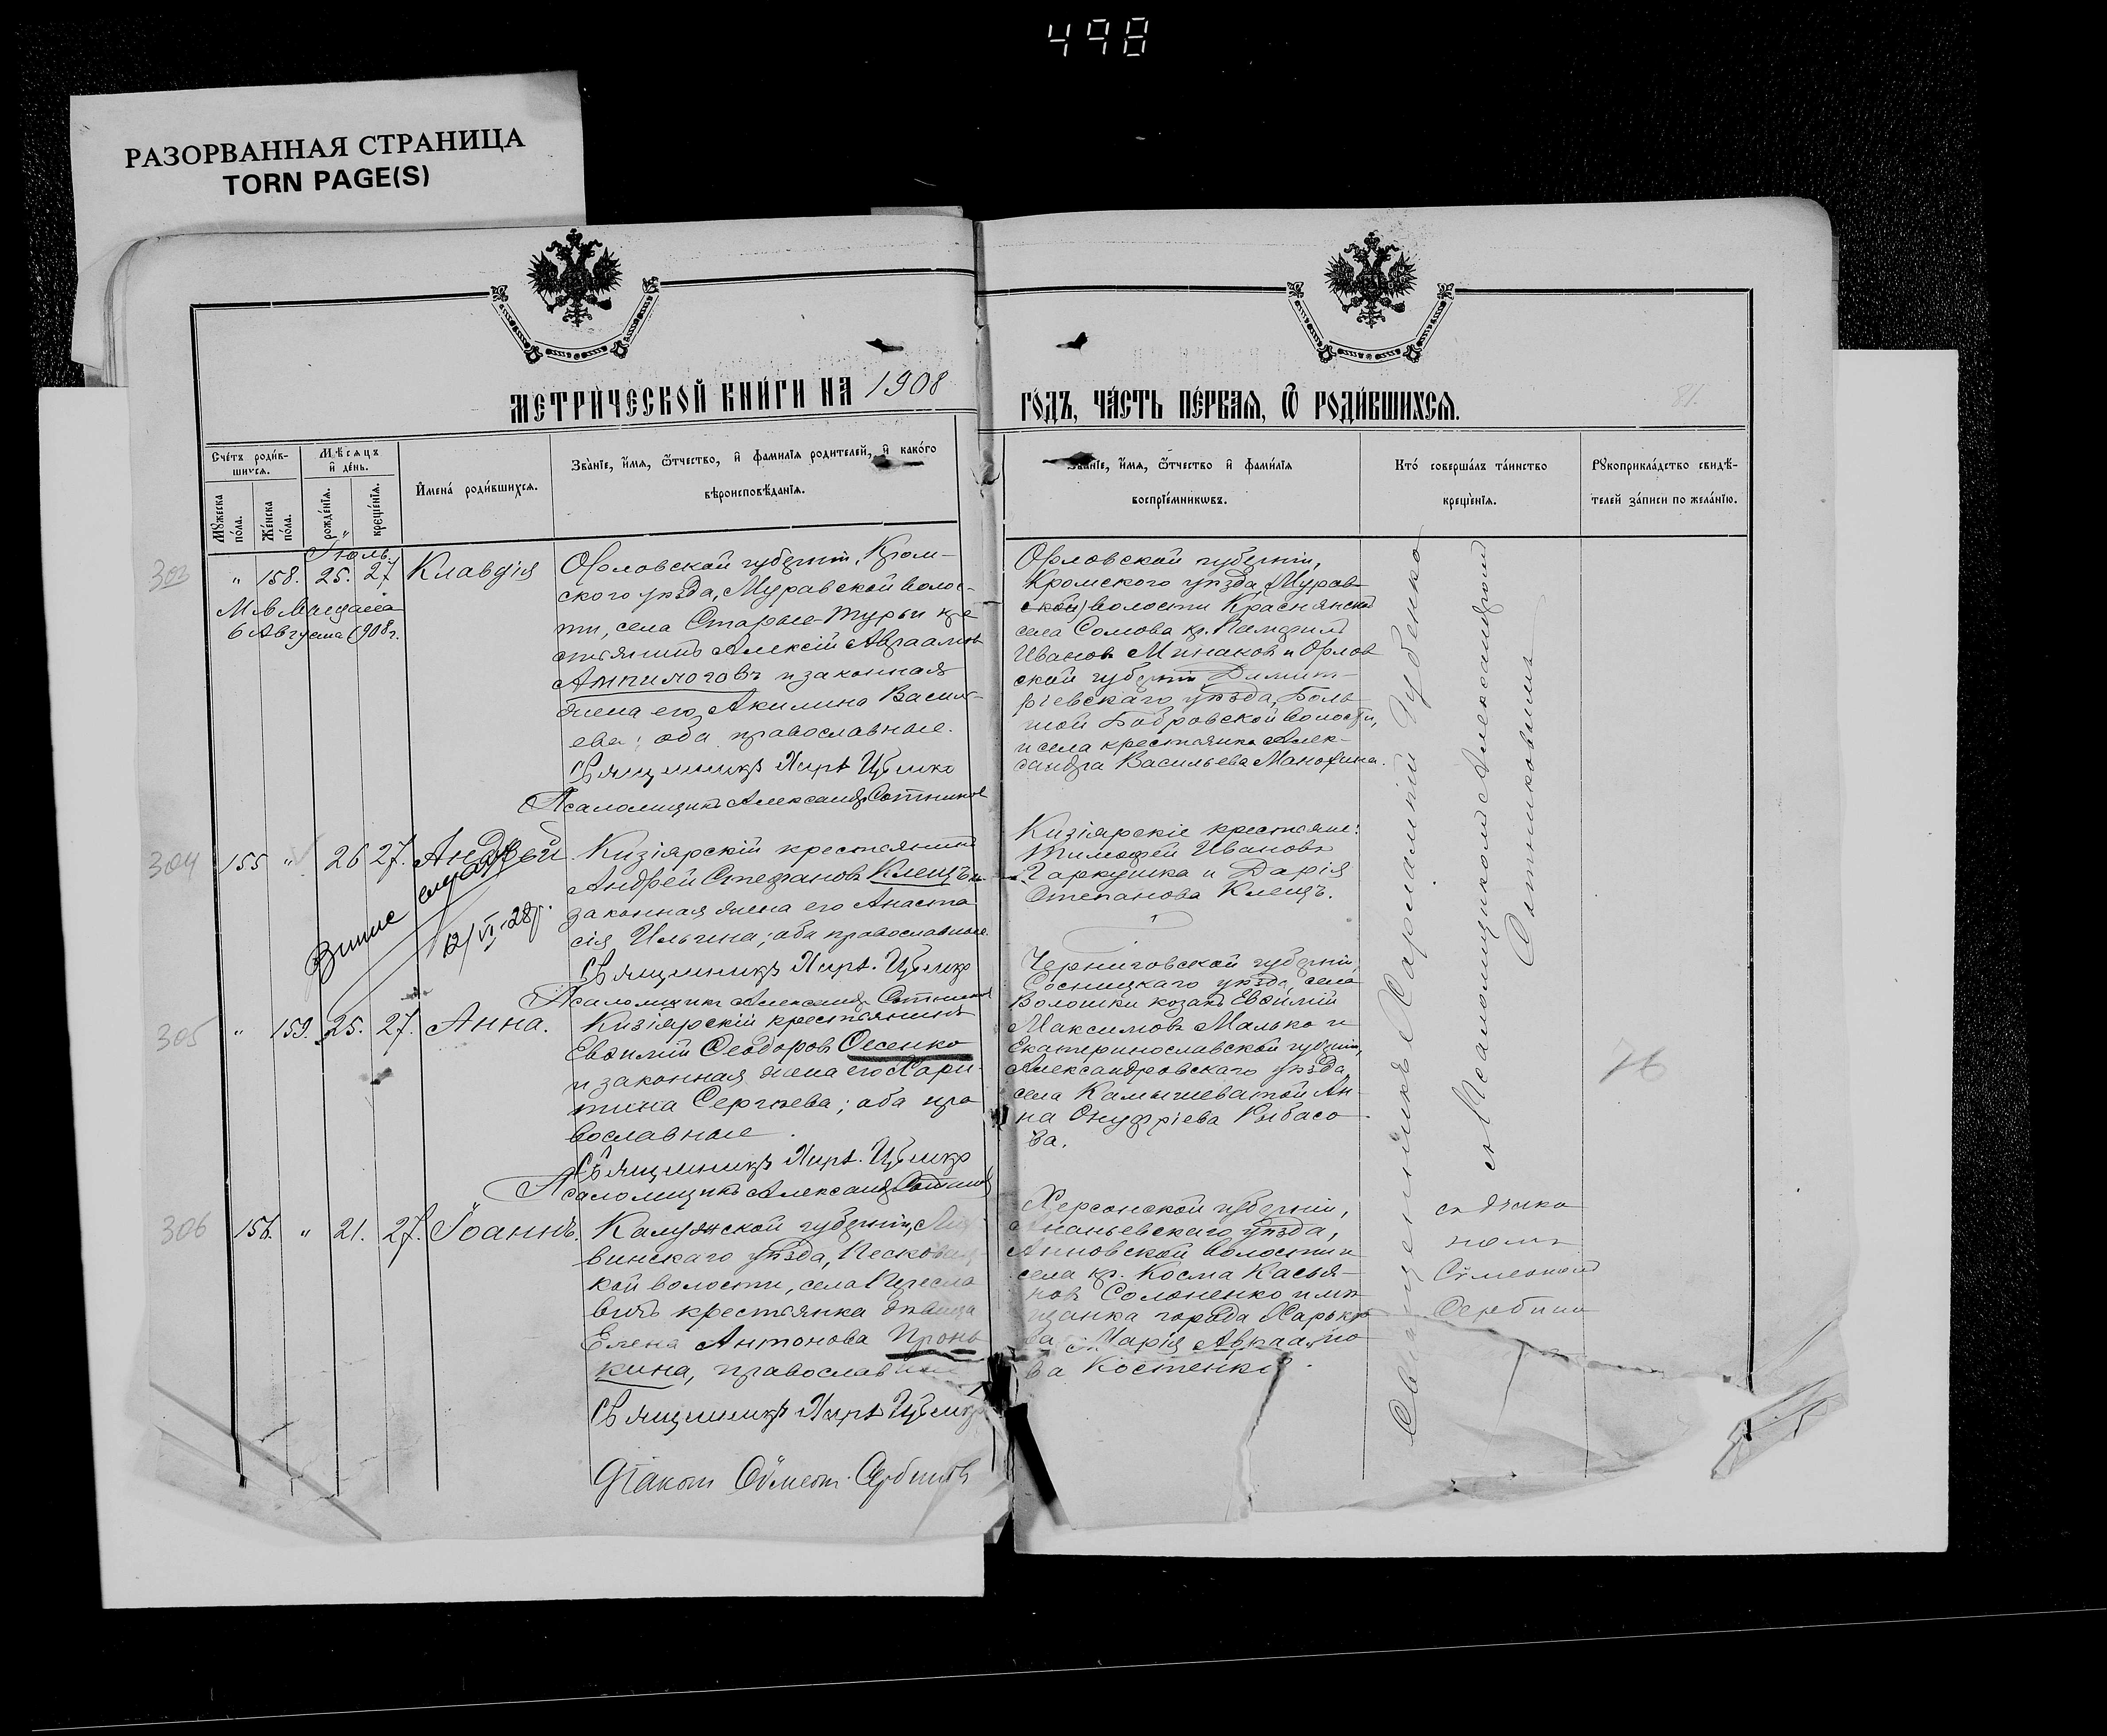 498
РАЗОРВАННАЯ СТРАНИЦА
TORN PAGE(S)
МЕТРИ́ЧЕСКОЙ КНИ́ГИ НА 1908
ГО́ДЪ, ЧА́СТЬ ПЕ́РВАЯ, Ѿ РОДИ́ВШИХСЯ.
81.
Сче́тъ роди́в-
шихся.
Мѣсяцъ
и҆ де́нь.
Мꙋжеска
по́ла.
Же́нска
по́ла.
рожде́нїя.
креще́нїя.
И҆мена́ роди́вшихся.
Зва́нїе, и҆́мя, ѻ҆́тчество, и҆ фами́лїя роди́телей, и҆ како́гѡ
вѣроисповѣ́данїя.
Зва́нїе, и҆́мя, ѻ҆́тчество и҆ фами́лїя
воспрїе́мникѡвъ.
Кто́ соверша́лъ та́инство
креще́нїя.
Рꙋкоприкла́дство свидѣ́-
телей за́писи по жела́нїю.
Іюль.
303
" 158. 25. 27 Клавдія
6 Августа 1908 г.
Орловской губерніи, Кром-
ского уѣзда, Муравской волос-
ти, села Старые-Турьи кре
стьянинъ Алексій Авраамов
Анпилоговъ и законная
жена его Акилина Василь-
ева; оба православные.
Священникъ Хар. Губенко
Псаломщикъ Александръ Сотников
Орловской губерніи,
Кромского уѣзда, Мурав
ской волости Краснянской
села Сомова кр. Памфилъ
Иванов Минаковъ и Орлов
ской губерніи Димит-
ріевскаго уѣзда, Боль
шой Бобровской волости,
и села крестьянка Алек-
сандра Васильева Манохина.
304
155 " 26 27. Андрей
12/VI-28 г.
Кизіярскій крестьянинъ
Андрей Стефановъ Клещъ и
законная жена его Анаста
сія Ильина; оба православные.
Священникъ Хар. Губенко
Псаломщикъ Александръ Сотников
Кизіярскіе крестьяне:
Тимофей Ивановъ
Гаркушка и Дарія
Степанова Клещъ.
305
" 159. 25. 27. Анна.
Кизіярскій крестьянинъ
Евфимій Феодоровъ Фесенко
и законная жена его Хари-
тина Сергѣева; оба пра
вославные.
Священникъ Хар. Губенко
Псаломщикъ Александръ Сотников
Черниговской губерніи,
Сосницкаго уѣзда, села
Волошки козакъ Евфимій
Максимовъ Малько и
Екатеринославской губерніи,
Александровскаго уѣзда,
села Камышеватой Ан-
на Онуфріева Рыбасо
ва.
76
306
156. " 21. 27. Іоаннъ.
Калужской губерніи, Ли
винскаго уѣзда, Песковат
кой волости, села
крестьянка дѣвица
Елена Антонова Пронь
кина, православная
Священникъ Хар. Губенко
Діаконъ Сѵмеонъ Сербинъ
Херсонской губерніи,
Ананьевскаго уѣзда,
Анновской волости и
села кр. Косма Касья-
новъ Солоненко и мѣ
щанка города Харько
ва Марія Авраамо
ва Костенко.
Священникъ Харлампій Губенко
и Псаломщикомъ Александромъ
Сотниковымъ
съ діяко
номъ
Сѵмеономъ
Сербинъ